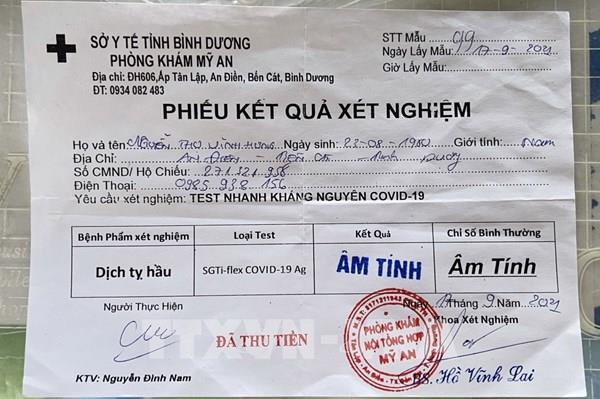 SỞ Y TẾ TỈNH BÌNH DƯƠNG
PHÒNG KHÁM MỸ AN
Địa chỉ: ĐH606,Ấp Tân Lập, An Điền, Bến Cát, Bình Dương
ĐT: 0934 082 483
STT Mẫu 019
Ngày Lấy Mẫu 17-9-2021
Giờ Lấy Mẫu
PHIẾU KẾT QUẢ XÉT NGHIỆM
Họ và tên Ngày sinh: 23-08-1980 Giới tính: Nam
Địa Chỉ An Điền -
Số CMND/ Hộ Chiếu: 271321956
Điện Thoại: 0985.938.156
Yêu cầu xét nghiệm: TEST NHANH KHÁNG NGUYÊN COVID-19
Bệnh Phẩm xét nghiệm Loại Test Kết Quả Chỉ Số Bình Thường
Dịch tỵ hầu SGTi-flex COVID-19 Ag ÂM TÍNH Âm Tính
Ngày 17 Tháng 9 Năm 2021
Người Thực Hiện Khoa Xét Nghiệm
ĐÃ THU TIỀN
PHÒNG KHÁM
NỘI TỔNG HỢP
MỸ AN
TTXVN
KTV: Nguyễn Đình Nam
BS. Hồ Vĩnh Lai